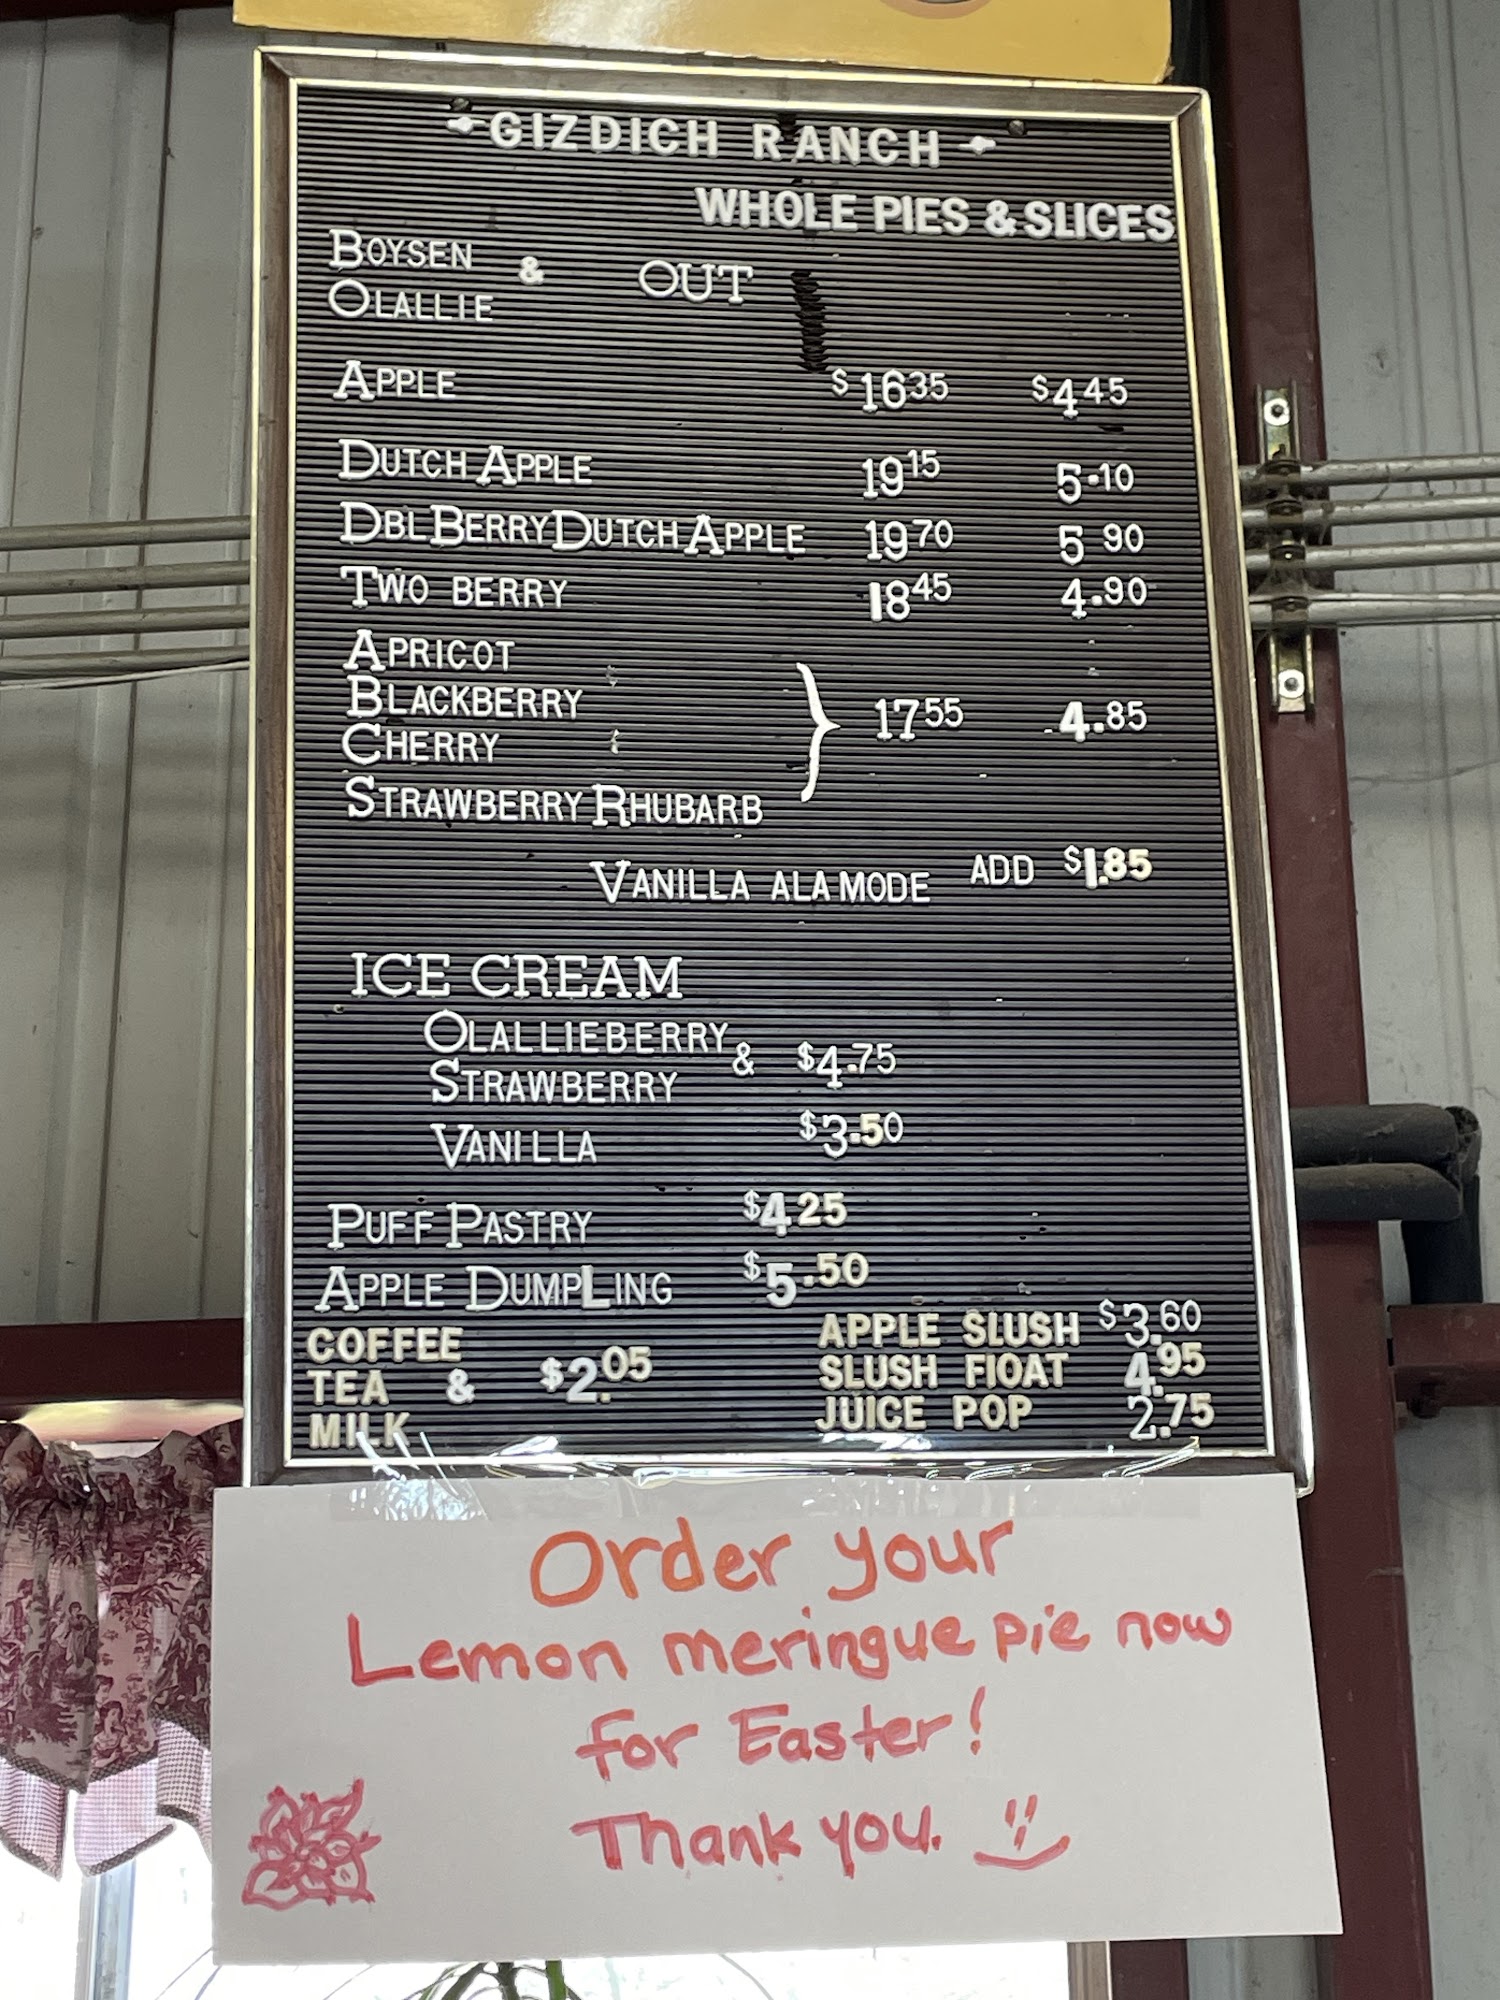 GIZDICH RANCH
WHOLE PIES & SLICES
BOYSEN
& OUT
OLALLIE
APPLE $1635 $445
DUTCH APPLE 1915 5.10
DBL BERRY DUTCH APPLE 1970 5 90
TWO BERRY 1845 4.90
APRICOT
BLACKBERRY
} 1755 4.85
CHERRY
STRAWBERRY RHUBARB
VANILLA ALA MODE ADD $1.85
ICE CREAM
OLALLIEBERRY
& $4.75
STRAWBERRY
VANILLA $3.50
PUFF PASTRY $4.25
APPLE DUMPLING $5.50
COFFEE
TEA & $2.05
MILK
APPLE SLUSH $3.60
SLUSH FIOAT 4.95
JUICE POP 2.75
Order your
Lemon meringue pie now
for Easter!
Thank you.